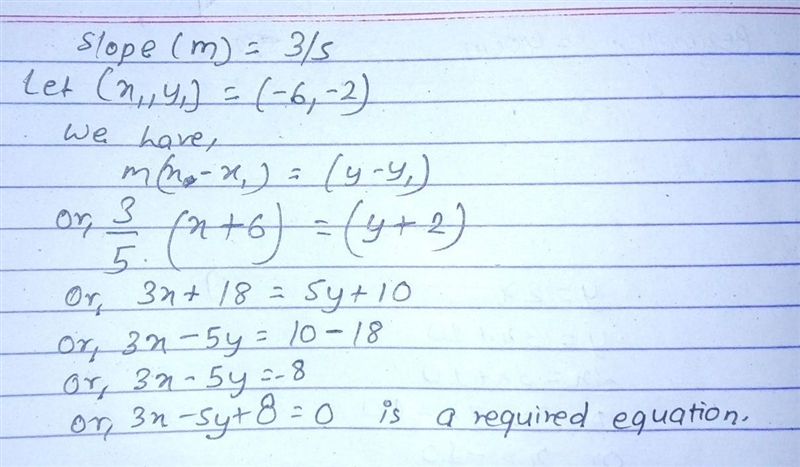 slope (m) = 3/5
Let (x₁, y₁) = (-6, -2)
We have,
m(x - x₁) = (y - y₁)
Or, 3/5 (x + 6) = (y + 2)
Or, 3x + 18 = 5y + 10
Or, 3x - 5y = 10 - 18
Or, 3x - 5y = -8
Or, 3x - 5y + 8 = 0 is a required equation.